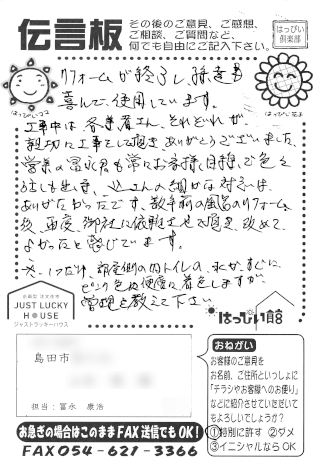 伝言板
その後のご意見、ご感想、
ご相談、ご質問など、
何でも自由にご記入下さい。
はっぴい
倶楽部
リフォームが終了し、孫達も
喜んで、使用しています。
工事中は、各業者さん、それぞれが、
親切に工事をして頂きありがとうございました。
営業の冨永君も常にお客様目線で色々
ありがたかったです。数年前の風呂のリフォーム
後、再度、御社に依頼させて頂き、改めて
よかったと感じています。
P.S. 1つだけ、部屋側の内トイレの、水が、すぐに
ピンク色が便器に着色しますが、
管理を教えて下さい。
はっぴい太郎
はっぴい花子
企画型 注文住宅
JUST LUCKY
HOUSE
ジャストラッキーハウス
はっぴい館
島田市
担当：冨永 康浩
おねがい
お客様のご意見を
お名前、ご住所といっしょに
「チラシやお客様へのお便り」
などに紹介させていただいて
もよろしいでしょうか？
①特別に許す ②ダメ
③イニシャルならOK
お急ぎの場合はこのままFAX送信でもOK!
FAX 054-621-3366